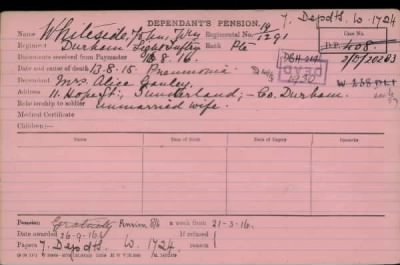 DEPENDANT'S PENSION.
7. Depdts. W. 1724
Name Whiteside, John, Regimental No. 19/1291
Case No.
Regiment Durham Light Inftry Rank Pte
408.
Documents received from Paymaster 16.8.16.
DGH
2/D/
Date and cause of death 13.8.15. Pneumonia.
Mrs. Alice
Address 11. Hope St; Sunderland; Co. Durham.
Relationship to soldier Unmarried wife.
Medical Certificate
Children:—
Name Date of Birth Date of Expiry Name Date of Birth Date of Expiry
Pension Gratuity Pension a week from 21-3-16.
Date awarded 26-9-16. If refused
Papers 7. Depdts. W. 1724. reason